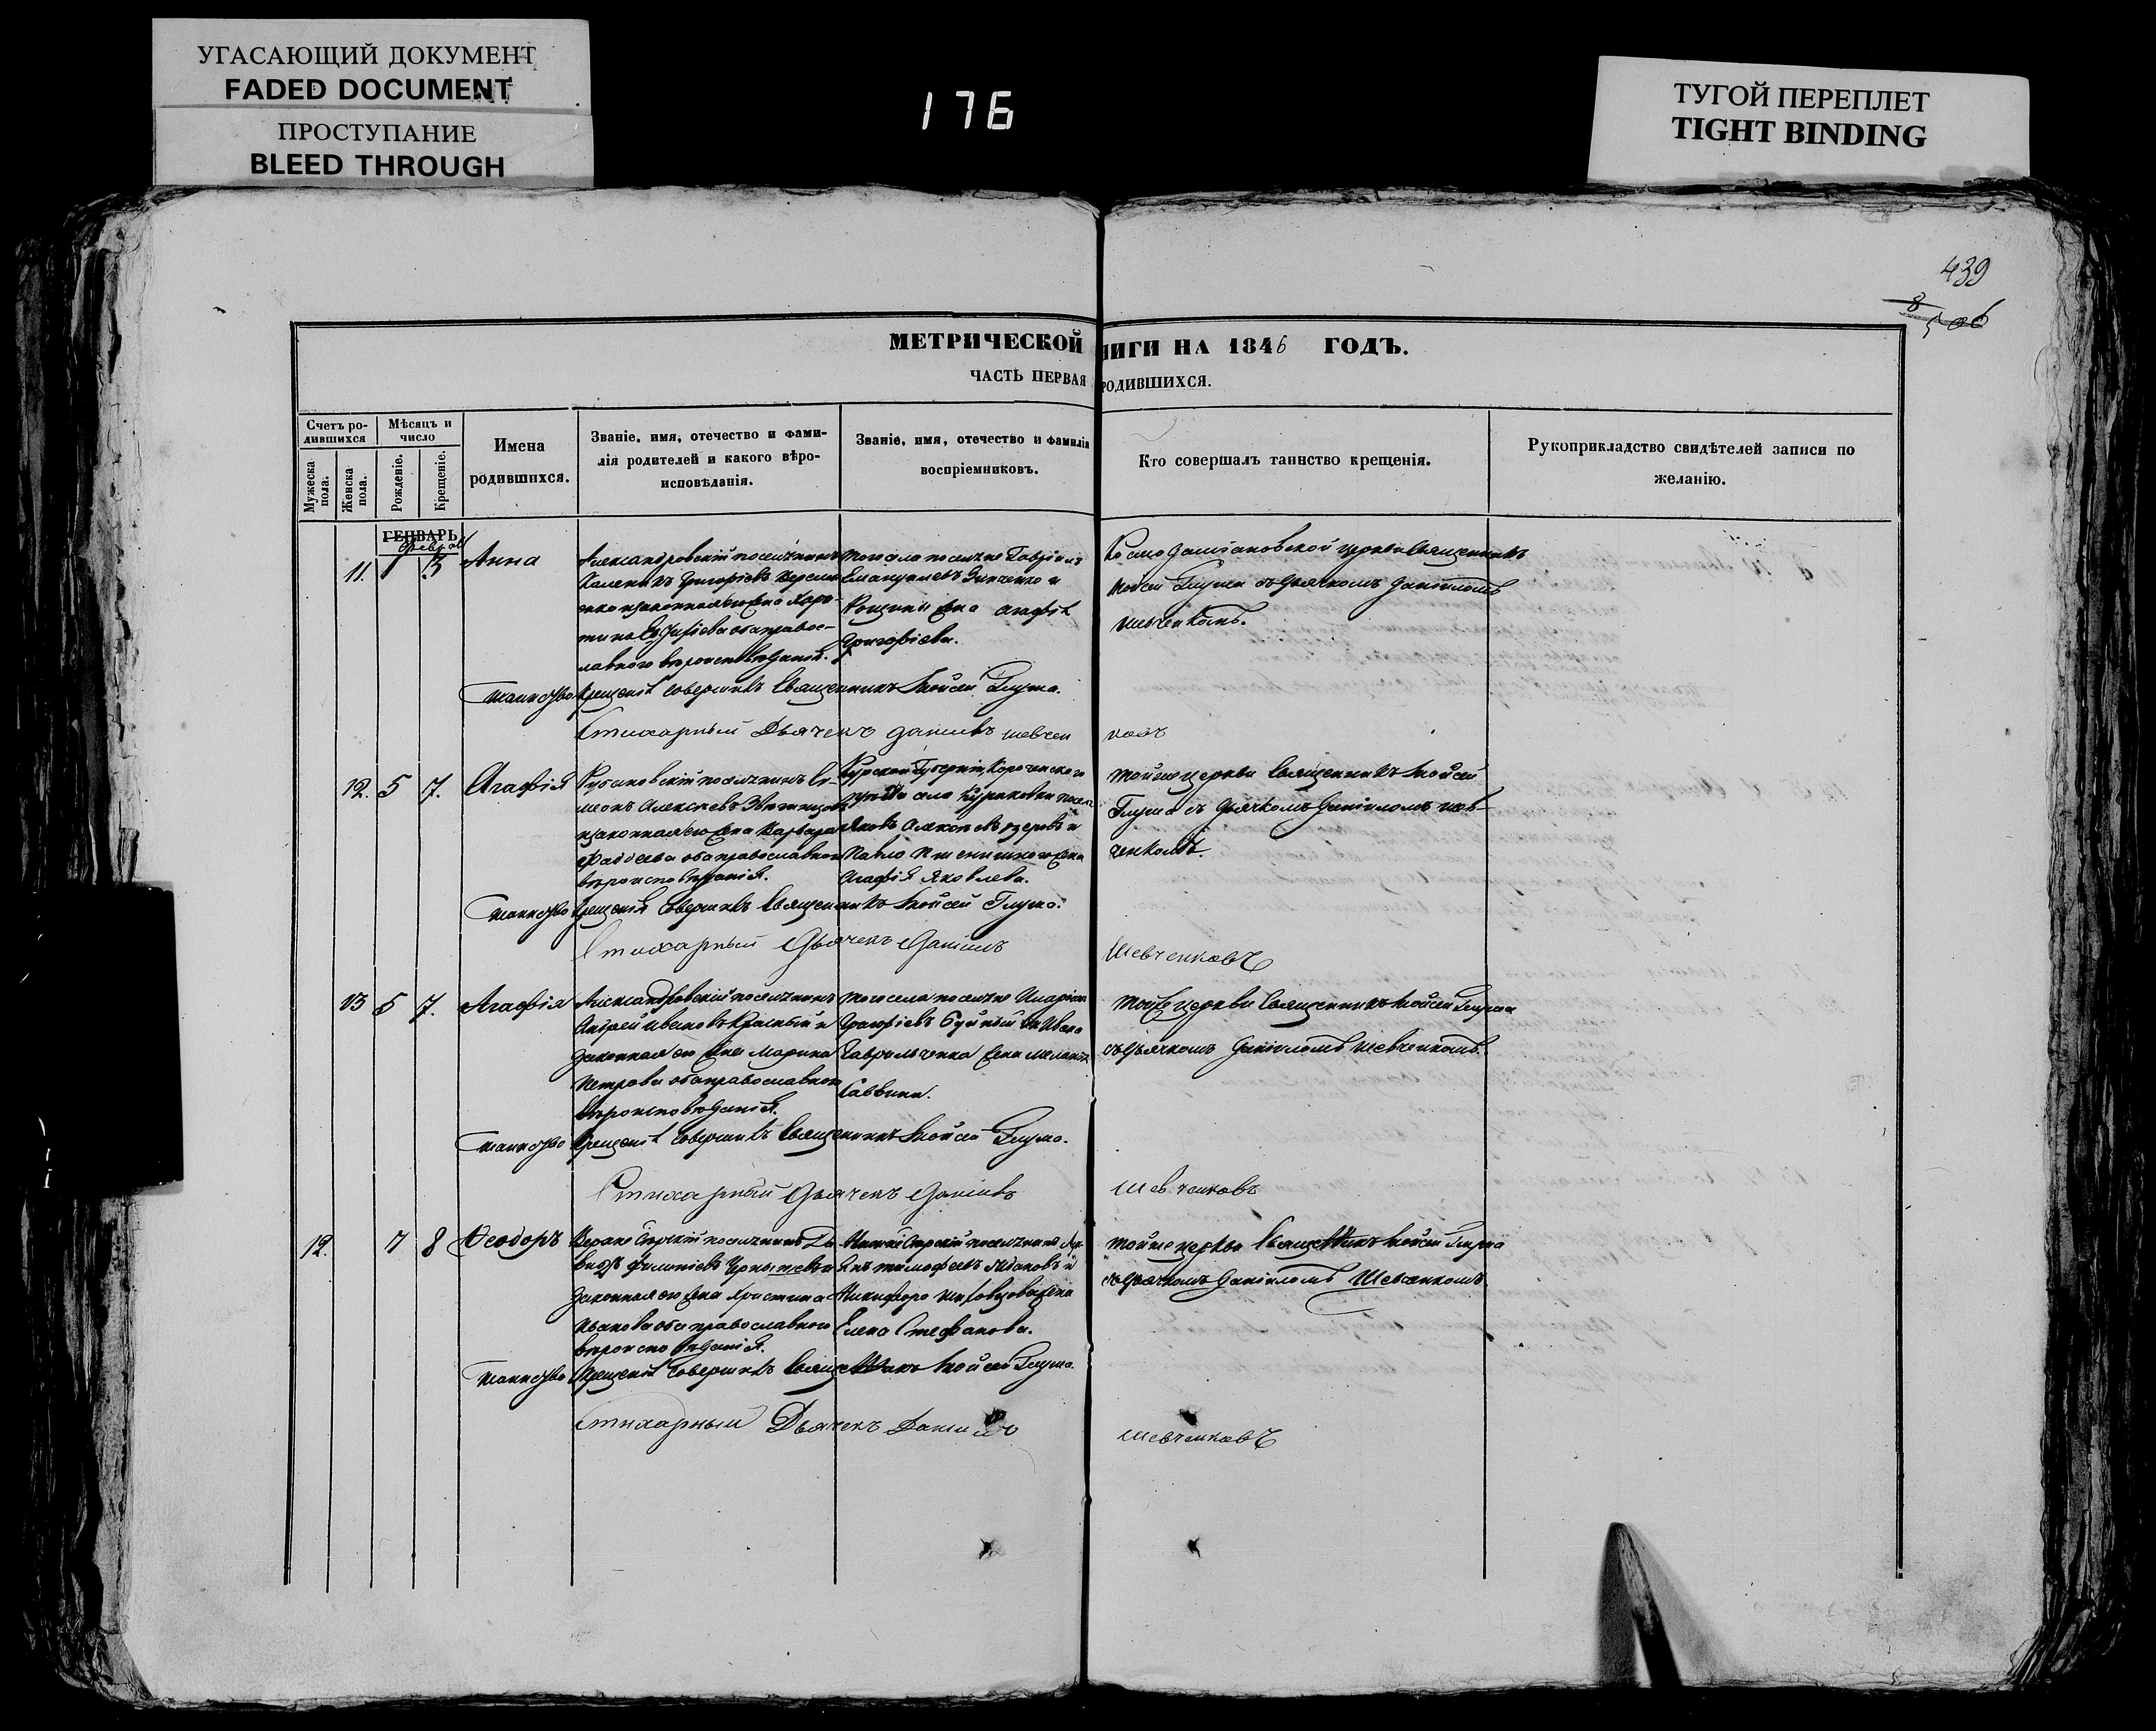 УГАСАЮЩИЙ ДОКУМЕНТ
FADED DOCUMENT
ПРОСТУПАНИЕ
BLEED THROUGH
176
ТУГОЙ ПЕРЕПЛЕТ
TIGHT BINDING
439
8
506
МЕТРИЧЕСКОЙ НИГИ НА 1846 ГОДЪ.
ЧАСТЬ ПЕРВАЯ РОДИВШИХСЯ.
Счетъ ро-
дившихся
Мужеска пола.
Женска пола.
Мѣсяцъ и
число
Рожденіе.
Крещеніе.
Имена
родившихся.
Званіе, имя, отечество и фами-
лія родителей и какого вѣро-
исповѣданія.
Званіе, имя, отечество и фамилія
воспріемниковъ.
Кто совершалъ таинство крещенія.
Рукоприкладство свидѣтелей записи по
желанію.
ГЕНВАРЬ
Февраль
11. 1 3 Анна
Александровскій поселянинъ
Григорьевъ
законная его жена
обаправос-
лавнаго вѣроисповѣданія.
того села поселяне Гавріилъ
Емануилевъ Зинченко и
жена Агафія
Григоріева.
Космодаміановской церкви Священникъ
Моисей Глума съ Дьячкомъ Даніиломъ
Шевченкомъ.
Таинство Крещенія совершилъ Священникъ Моисей Глума.
Стихарный Дьячекъ Даніилъ Шевчен ковъ
12. 5 7. Агафія
поселянинъ Си-
меонъ Алексѣевъ
и законная его жена Варвара
Фаддеева обаправославнаго
вѣроисповѣданія.
Курской Губерніи Корочанского
уѣзда села
Яковъ и
Павло жена
Агафія Яковлева.
Тойже церкви Священникъ Моисей
Глума съ Дьячкомъ Даніиломъ Шев-
ченкомъ.
Таинство Крещенія совершилъ Священникъ Моисей Глума.
Стихарный Дьячекъ Даніилъ Шевченковъ
13 5 7. Агафія
Александровскій поселянинъ
Андрей Ивановъ Красный и
законная его жена Марина
Петрова обаправославнаго
вѣроисповѣданія.
того села поселяне Иларіонъ
Григоріевъ Буйный и Ивана
Гаврильченка жена Меланія
Саввина.
Тойже церкви Священникъ Моисей Глума
съ Дьячкомъ Даніиломъ Шевченкомъ.
Таинство Крещенія совершилъ Священникъ Моисей Глума.
Стихарный Дьячекъ Даніилъ Шевченковъ
12. 7 8 Ѳеодоръ
поселянинъ Да-
видъ Филиповъ Чернышевъ и
законная его жена Христина
Иванова оба православнаго
вѣроисповѣданія.
поселянинъ
Тимофеевъ и
Никифора жена
Елена Стефанова.
Тойже церкви Священникъ Моисей Глума
съ Дьячкомъ Даніиломъ Шевченкомъ
Таинство Крещенія совершилъ Священникъ Моисей Глума.
Стихарный Дьячекъ Даніилъ Шевченковъ